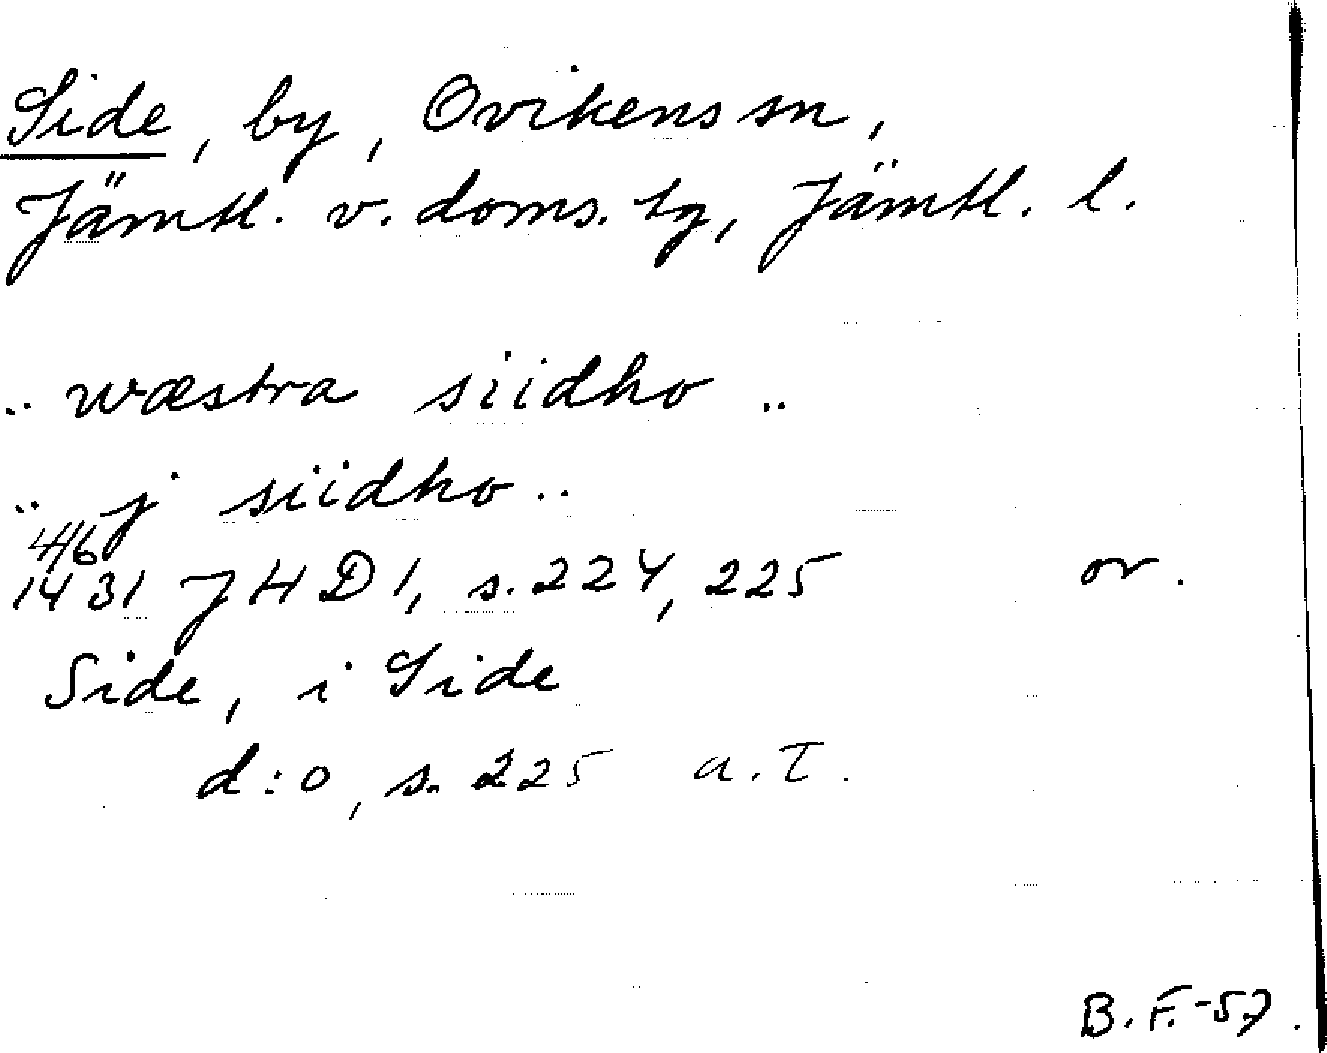 Side, by, Ovikens sn,
Jämtl. v. doms. tg, Jämtl. l.
.. wæstra siidho ..
.. j siidho ..
4/6
1431 JHD 1, s. 224, 225 or.
Side, i Side
d:o, s. 225 a.T.
B.F.-57.